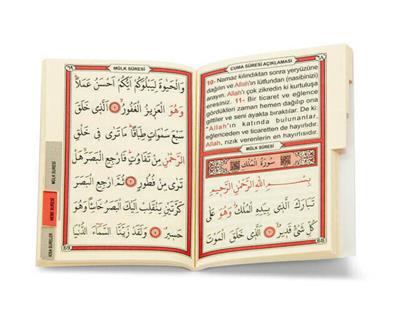 CUMA SÛRESİ AÇIKLAMASI
10- Namaz kılındıktan sonra yeryüzüne
dağılın ve Allah'ın lütfundan (nasibinizi)
arayın. Allah'ı çok zikredin ki kurtuluşa
eresiniz. 11- Bir ticaret ve eğlence
gördükleri zaman hemen dağılıp ona
gittiler ve seni ayakta bıraktılar. De ki:
"Allah'ın katında bulunanlar,
eğlenceden ve ticaretten de hayırlıdır.
Allah, rızık verenlerin en hayırlısıdır.
MÜLK SÛRESİ
سُورَةُ الْمُلْكِ
بِسْمِ اللّٰهِ الرَّحْمٰنِ الرَّحِيمِ
تَبَارَكَ الَّذِى بِيَدِهِ الْمُلْكُ وَهُوَ عَلٰى
كُلِّ شَىْءٍ قَدِيرٌ الَّذِى خَلَقَ الْمَوْتَ
68
MÜLK SÛRESİ
وَالْحَيٰوةَ لِيَبْلُوَكُمْ اَيُّكُمْ اَحْسَنُ عَمَلًا
وَهُوَ الْعَزِيزُ الْغَفُورُ الَّذِى خَلَقَ
سَبْعَ سَمٰوَاتٍ طِبَاقًا مَا تَرٰى فِى خَلْقِ
الرَّحْمٰنِ مِنْ تَفَاوُتٍ فَارْجِعِ الْبَصَرَ هَلْ
تَرٰى مِنْ فُطُورٍ ثُمَّ ارْجِعِ الْبَصَرَ
كَرَّتَيْنِ يَنْقَلِبْ اِلَيْكَ الْبَصَرُ خَاسِئًا وَهُوَ
حَسِيرٌ وَلَقَدْ زَيَّنَّا السَّمَاءَ الدُّنْيَا
69
MÜLK SURESİ
NEBE SURESİ
KISA SURELER